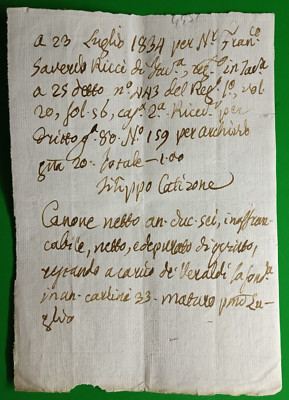 a 23 Luglio 1834 per Nr. Fran.
Saverio Ricci di Tav.a, reg.to in Tav.a
a 25 detto n.o 443 del Reg. 1.o, vol.
20, fol. 56, cas.a 2.a Ricev. per
dritto g.a 80. N.o 159 per archivio
gna 20. totale - 1.00
Filippo Catizone
Canone netto an. duc. sei, inaffran-
cabile, netto, e depurato di quinto,
restando a carico de' Veraldi la fond.a
in an. carlini 33. maturo p.mo Lu-
glio